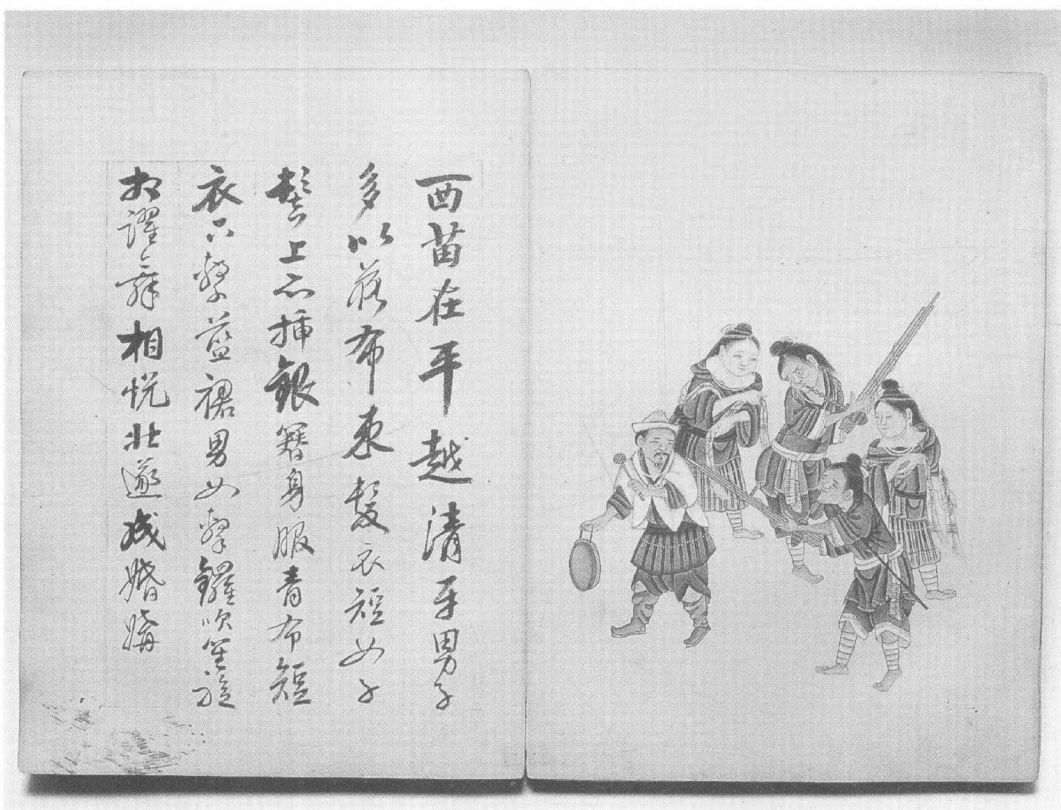 西苗在平越清平男子
多以藏布束髮衣短女子
髻上亦插銀簪身服青布短
衣下繫藍裙男女擊鑼吹笙旋
相躍舞相悅壯遂成婚媾